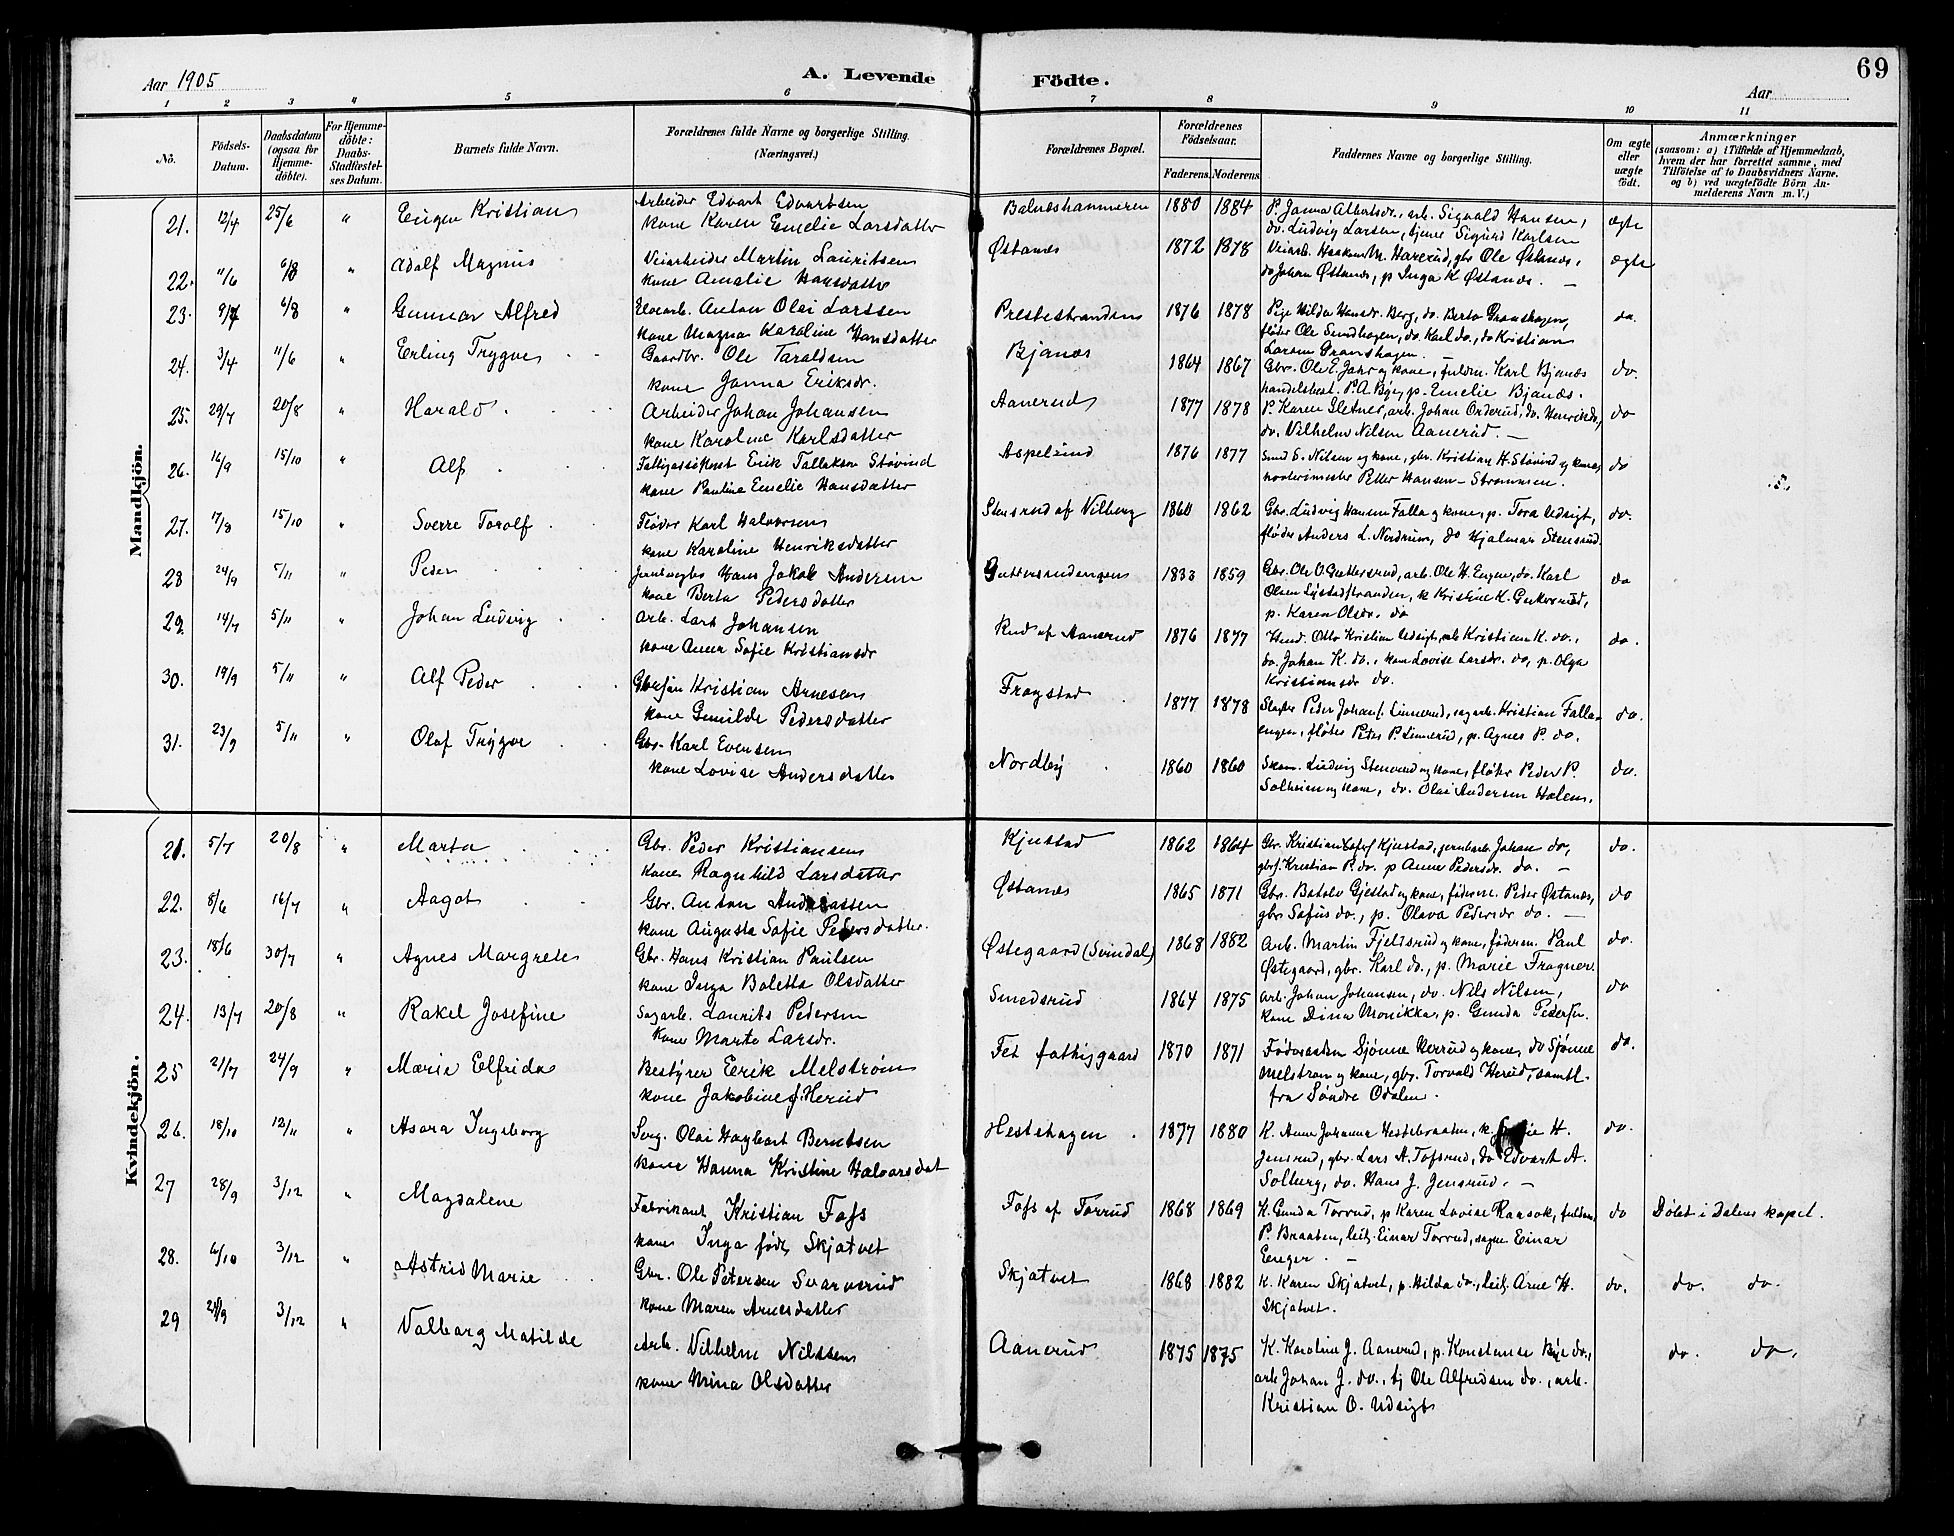 Aar 1905
A. Levende
Födte.
69
Aar
1 2 3 4 5 6 7 8 9 10 11
No.
Födsels-Datum.
Daabsdatum (ogsaa för Hjemme-döbte).
For Hjemme-döbte: Daabs-Stadfæstel-ses Datum.
Barnets fulde Navn.
Forældrenes fulde Navne og borgerlige Stilling.
(Næringsvei.)
Forældrenes Bopæl.
Forældrenes Födselsaar.
Faderens. Moderens.
Faddernes Navne og borgerlige Stilling.
Om ægte eller uægte födt.
Anmærkninger
(saasom: a) i Tilfælde af Hjemmedaab, hvem der har forrettet samme, med Tilföielse af to Daabsvidners Navne. og b) ved uægtefödte Börn An-melderens Navn m. V.)
Mandkjön.
21. 12/4 25/6 " Eugen Kristian Arbeider Edvart Edvartsen Balnæshammeren 1880 1884 P. Janna Albertsdr., arb. Sigvald Hansen, ægte
kone Karen Emelie Larsdatter do. Ludvig Larsen, tjener Sigurd Karlsen
22. 11/6 6/8 " Adolf Magnus Veiarbeider Martin Lauritsen Østanes 1872 1878 Veiarb. Haakon M. Harerud, gbr Ole Østanes, ægte
kone Amalie Hansdatter do Johan Østanes, p Inga K Østanes. —
23. 9/7 6/8 " Gunnar Alfred Elvearb. Anton Olai Larssen Prestestranden 1876 1878 Pige Hilda Hansdr. Berg, do. Berta Granshagen, do.
kone Magna Karoline Hansdatter fløter Ole Sundhagen, do. Karl do., do Kristian
Larsen Granshagen.
24. 3/4 11/6 " Erling Trygve Gaardbr. Ole Taraldsen Bjanæs 1864 1867 Gbr. Ole E. Jahr og kone, fuldm. Karl Bjanæs do.
kone Janna Eriksdr. handelsbest. P. A. Bye, p. Emelie Bjanæs.
25. 29/7 20/8 " Harald Arbeider Johan Johansen Aanerud 1877 1878 P. Karen Sletner, arb. Johan Orderud, do. Henrik do., do
kone Karoline Karlsdatter do. Vilhelm Nilsen Aanerud. —
26. 16/9 15/10 " Alf Erik Tolleksen Støvind Aspelund 1876 1877 Smed E. Nilsen og kone, gbr. Kristian H. Støvind og kone, do
kone Pauline Emelie Hansdatter Petter Hansen - Strømmen.
27. 17/8 15/10 " Sverre Torolf Fløder Karl Halvorsen Stensrud af Nilberg 1860 1862 Gbr. Ludvig Hansen Falla og kone, p. Tora Udsigt, do.
kone Karoline Henriksdatter fløder Anders L. Nordrum, do Hjalmar Stensrud.
28 24/9 5/11 " Peder Hans Jakob Andersen Guttersrudengen 1833 1859 Gbr. Ole O. Guttersrud, arb. Ole H. Engen, do. Karl do
kone Berta Pedersdatter Olsen k Kristine K. Guttersrud,
p. Karen Olsdr. do
29. 14/7 5/11 " Johan Ludvig Arb. Lars Johansen Rud af Aanerud 1876 1877 Otto Kristian Udsigt, Kristian K. do., do.
kone Anna Sofie Kristiansdr do. Johan K. do., kone Lovise Larsdr. do, p. Olga
Kristiansdr do.
30. 19/9 5/11 " Alf Peder Kristian Arnesen Frogstad 1877 1878 Peder Johans. Linnerud, sagarb. Kristian Falla- do.
kone Gunilde Pedersdatter engen, fløter Peter P. Linnerud, p. Agnes P. do.
31. 23/9 5/11 " Olaf Trygve Gbr. Karl Evensen Nordby 1860 1860 Skom. Ludvig Stensrud og kone, fløter Peder P. do.
kone Lovise Andersdatter Solheim og kone, do. Olai Andersen Halem.
Kvindekjön.
21. 5/7 20/8 " Marta Gbr. Peder Kristiansen Kjustad 1862 1864 Gbr. Kristian Kjustad, jernbarb. Johan do., do.
kone Ragnhild Larsdatter gbrs. Kristian P. do. p Anne Pedersdr. do. —
22. 8/6 16/7 " Aagot Gbr. Anton Andreassen Østanes 1865 1871 Gbr. Gjestad og kone, føderm. Peder Østanæs, do
kone Augusta Sofie Pedersdatter. gbr Sofus do., p. Olava Pedersdr do. —
23. 18/6 30/7 " Agnes Margrete Gbr. Hans Kristian Paulsen Østegaard (Svindal) 1868 1882 Arb. Martin Fjeldsrud og kone, føderm. Paul do.
kone Inga Boletta Olsdatter Østegaard, gbr. Karl do., p. Marie Fragner.
24. 13/7 20/8 " Rakel Josefine Sagarb. Laurits Pedersen Smedsrud 1864 1875 arb. Johan Johansen, do. Nils Nilsen, do
kone Marte Larsdr. kone Dina Monikka, p. Gunda Pedersen.
25 21/7 24/9 " Marie Elfrida Bestyrer Erik Melstrøm Fet fattiggaard 1870 1871 Sjønne Herrud og kone, do Sjønne do.
kone Jakobine f. Herud Melstrøm og kone, gbr. Torvald Herud, samtl.
fra Søndre Odalen.
26. 18/10 12/11 " Asora Ingeborg Serg. Olai Hagbart Berntsen Hestehagen 1877 1880 K. Anne Johanna Hestebraaten, k. H. do.
kone Hanna Kristine Halvorsdat Jensrud, gbr. Lars A. Tofsrud, do Edvart A.
Solberg, do. Hans J. Jensrud. —
27 28/9 3/12 " Magdalene Fabrikant Kristian Fofs Fofs af Torrud 1868 1869 K. Gunda Torrud, p Karen Lovise Ramsok, fuldm. do Døbt i Dalens kapel.
kone Inga født Skjatvet P. Braaten, Einar Torrud, Einar
Enger. —
28. 6/10 3/12 Astrid Marie Gbr. Ole Petersen Svarverud Skjatvet 1868 1882 K. Karen Skjatvet, p. Hilda do., Arne H. do. do. do.
kone Maren Arnesdatter Skjatvet.
29 28/9 3/12 " Valborg Matilde Arb. Vilhelm Nilssen Aanerud 1875 1875 K. Karoline J. Aanerud, p. Konstanse Bye do., do. do.
kone Mina Olsdatter arb Johan J. do., tj Ole Alfredsen do., arb.
Kristian O. Udsigt